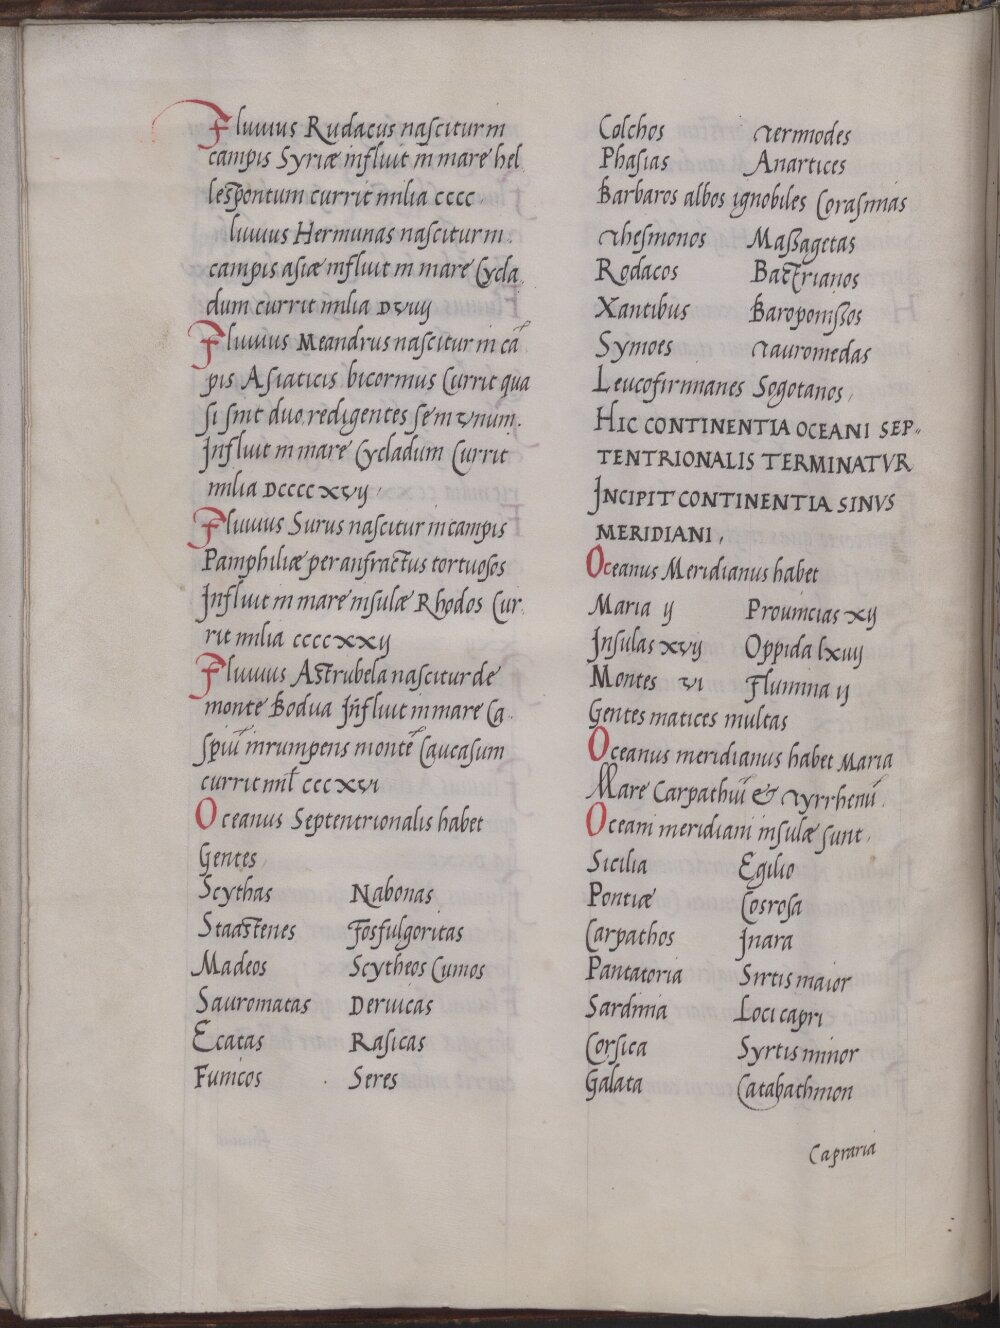 Fluuius Rudacus nascitur in
campis Syriæ influit in mare hel
lespontum currit milia cccc
luuius Hermunas nascitur in
campis asiæ influit in mare Cycla
dum currit milia DVIIIJ
Fluuius Meandrus nascitur in cā
pis Asiaticis bicormus Currit qua
si sint duo, redigentes se in vnum.
Influit in mare Cycladum Currit
milia DCCCC XVIJ,
Fluuius Surus nascitur in campis
Pamphiliæ per anfractus tortuosos
Influit in mare insulæ Rhodos Cur
rit milia CCCCXXIJ
Fluuius Astrubela nascitur de
monte Bodua Influit in mare Ca
spiū inrumpens montē Caucasum
currit mil̄ CCCXVI
Oceanus Septentrionalis habet
Gentes
Scythas Nabonas
Staastenes Fosfulgoritas
Madeos Scytheos Cumos
Sauromatas Deruicas
Ecatas Rasicas
Funicos Seres
Colchos Termodes
Phasias Anartices
Barbaros albos ignobiles Corasmias
Thesmonos Massagetas
Rodacos Bactrianos
Xantibus Baropomissos
Symoes Tauromedas
Leucofirmnanes Sogotanos,
HIC CONTINENTIA OCEANI SEP-
TENTRIONALIS TERMINATVR
INCIPIT CONTINENTIA SINVS
MERIDIANI,
Oceanus Meridianus habet
Maria ij Prouincias xij
Insulas xvij Oppida lxiiij
Montes vi Flumina ij
Gentes matices multas
Oceanus meridianus habet Maria
Mare Carpathiū & Tyrrhenū.
Oceani meridiani insulæ sunt,
Sicilia Egilio
Pontiæ Cosrosa
Carpathos Inara
Pantatoria Sirtis maior
Sardinia Loci capri
Corsica Syrtis minor
Galata Catabathmon
Capraria